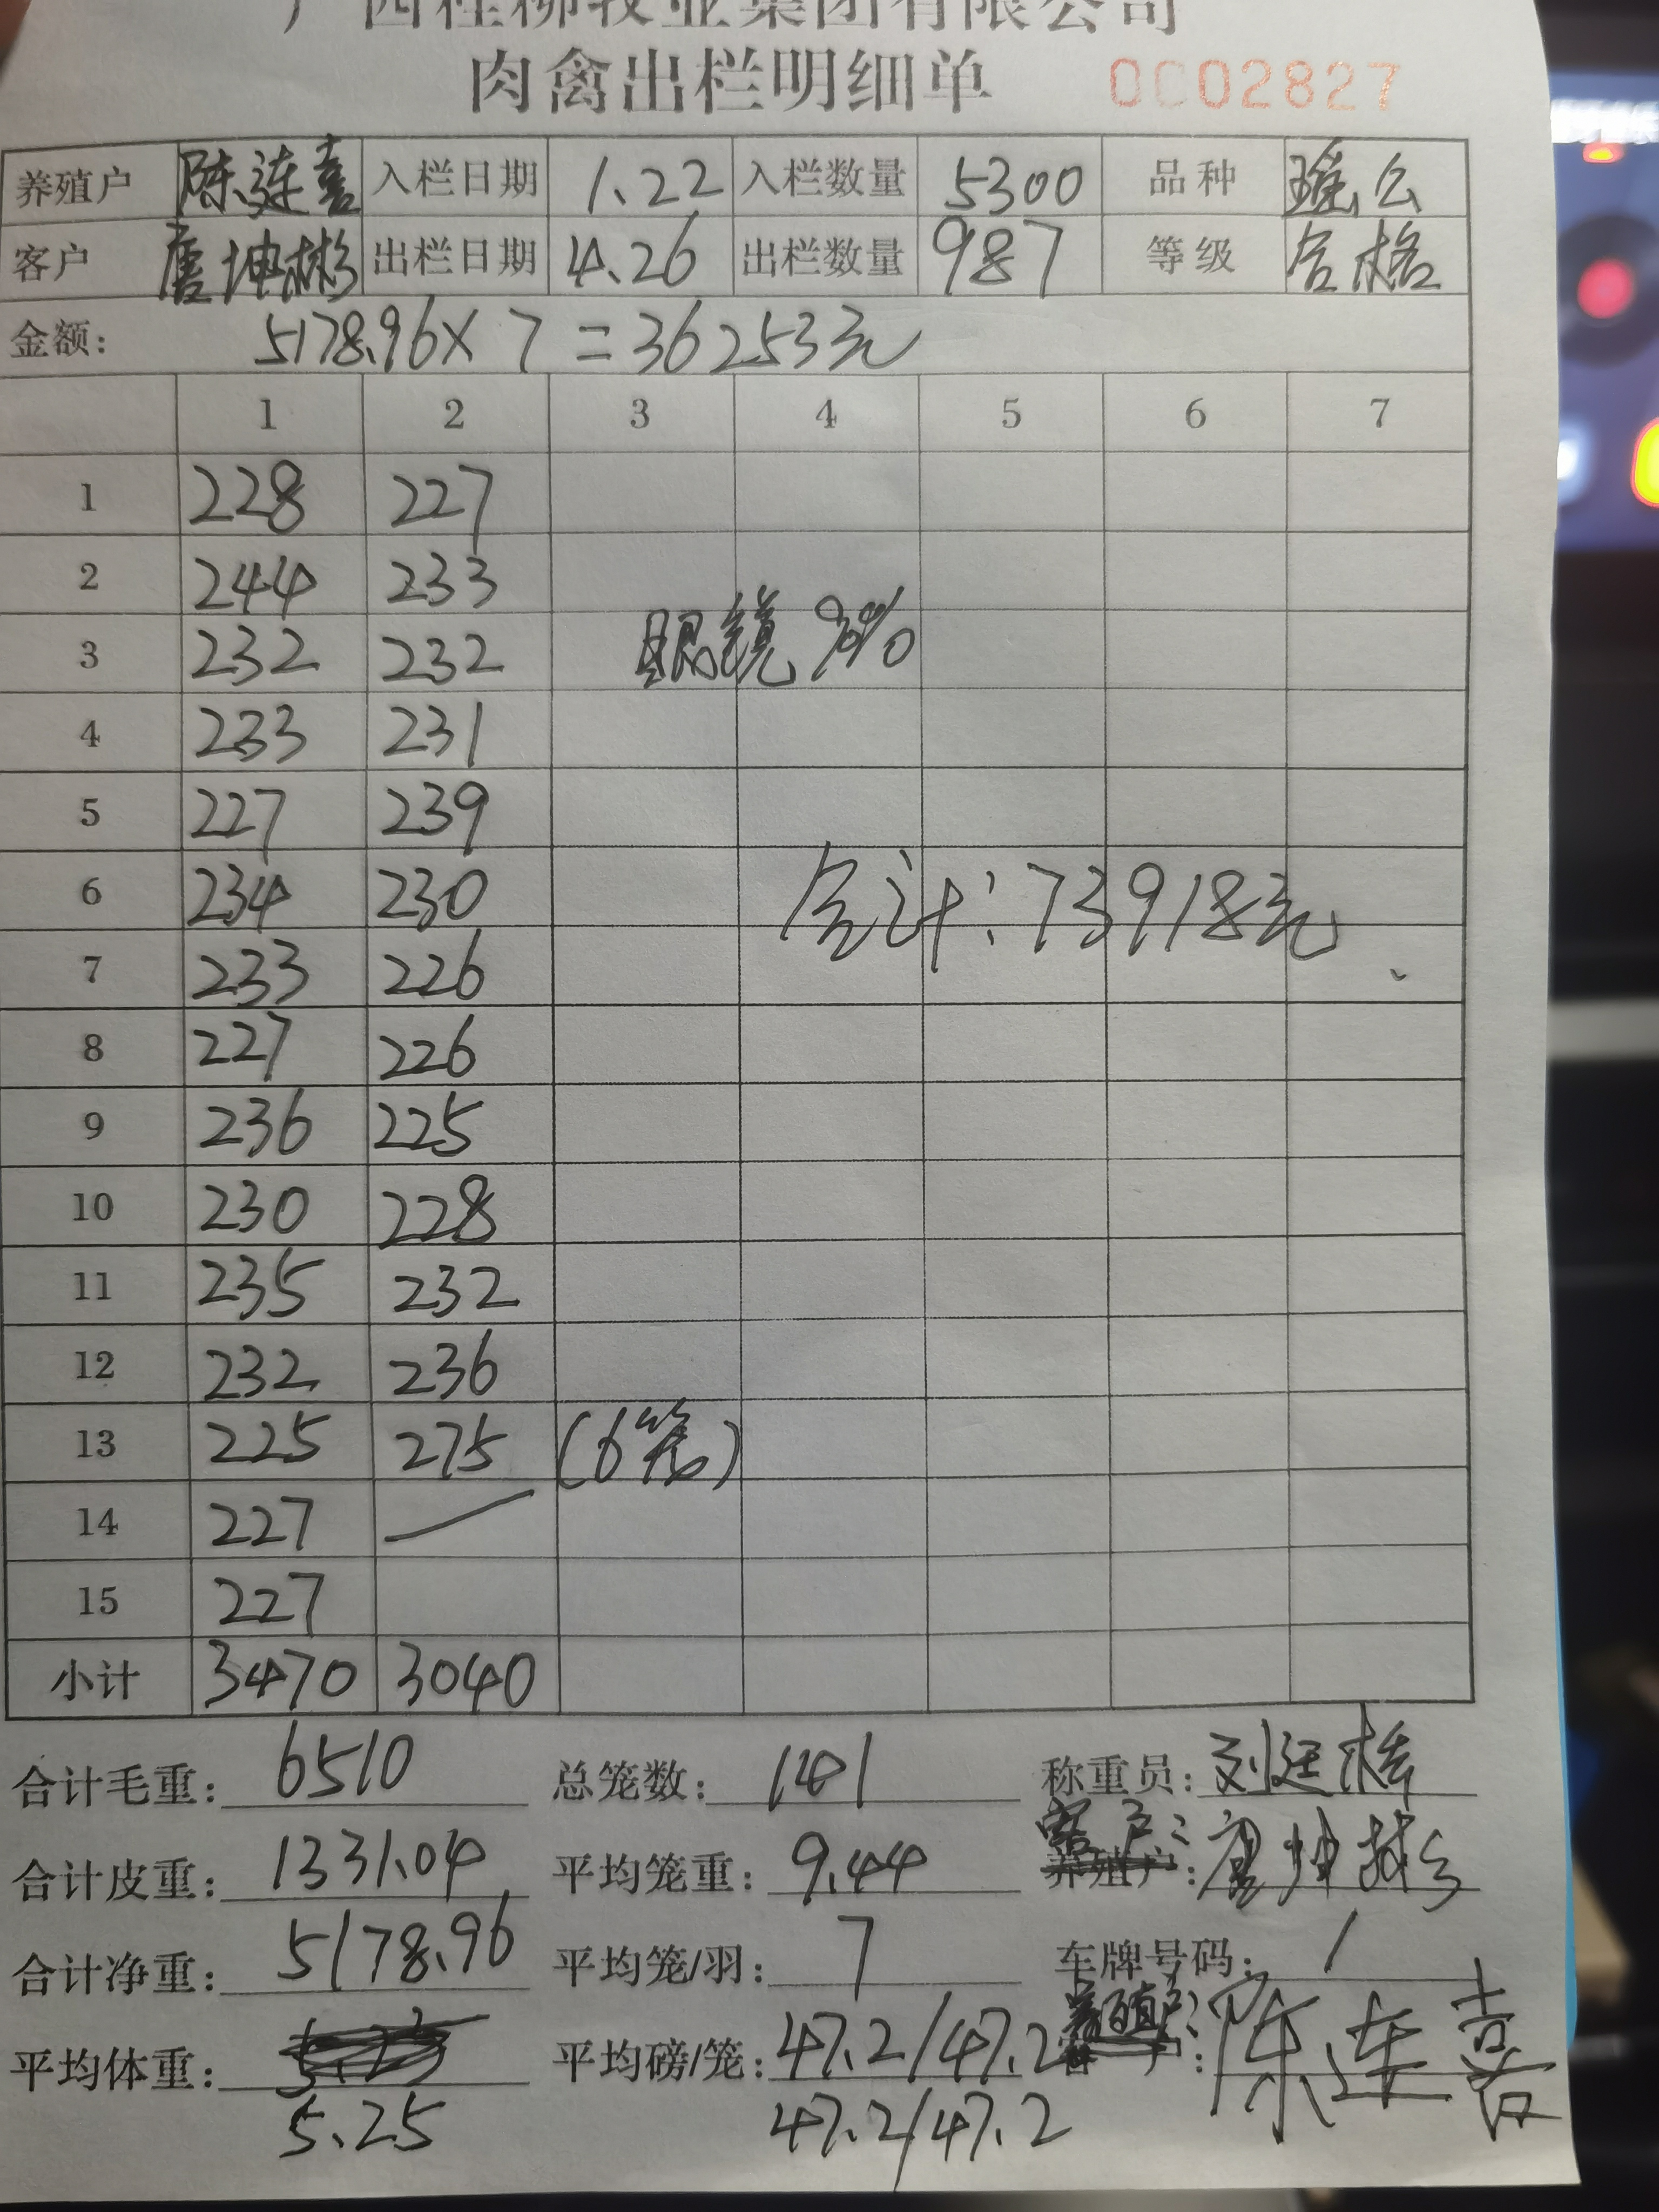 广西桂柳牧业集团有限公司
肉禽出栏明细单 0002827
养殖户 陈连喜 入栏日期 1.22 入栏数量 5300 品种 瑶么
客户 唐坤彬 出栏日期 4.26 出栏数量 987 等级 合格
金额: 5178.96×7=36253元
1 2 3 4 5 6 7
1 228 227
2 244 233
3 232 232 眼镜
4 233 231
5 227 239
6 234 230 合计:73918元
7 233 226
8 227 226
9 236 225
10 230 228
11 235 232
12 232 236
13 225 275 (6笼)
14 227 —
15 227
小计 3470 3040
合计毛重: 6510 总笼数: 141 称重员: 刘廷
合计皮重: 1331.04 平均笼重: 9.44 客户: 唐坤彬
合计净重: 5178.96 平均笼/羽: 7 车牌号码: /
平均体重: 平均磅/笼: 47.2/47.2 养殖户: 陈连喜
5.25 47.2/47.2